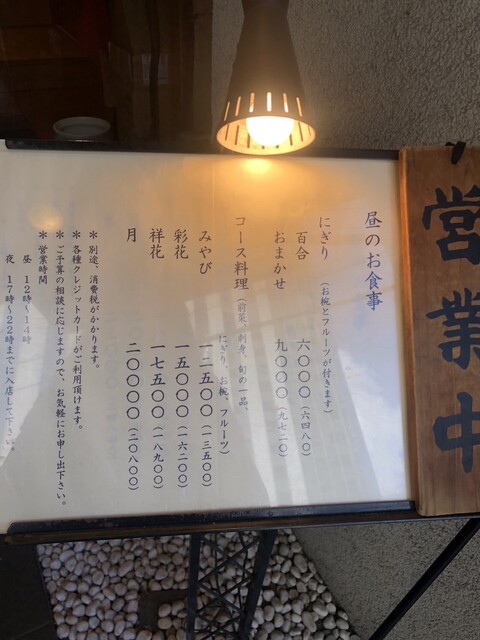 営業中
昼のお食事
にぎり (お椀とフルーツが付きます)
百合 六〇〇〇(六四八〇)
おまかせ 九〇〇〇(九七二〇)
コース料理(前菜、刺身、旬の一品、
にぎり、お椀、フルーツ)
みやび 一二五〇〇(一三五〇〇)
彩花 一五〇〇〇(一六二〇〇)
祥花 一七五〇〇(一八九〇〇)
月 二〇〇〇〇(二〇八〇〇)
＊別途、消費税がかかります。
＊各種クレジットカードがご利用頂けます。
＊ご予算の相談に応じますので、お気軽にお申し出下さい。
＊営業時間
昼 12時〜14時
夜 17時〜22時までに入店して下さい。